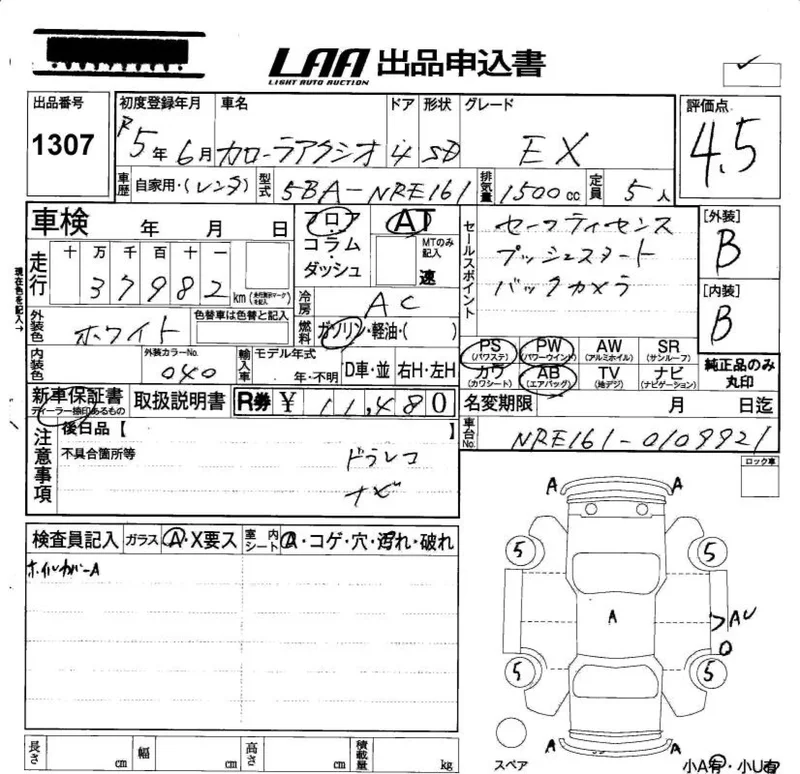 LAA 出品申込書
LIGHT AUTO AUCTION
出品番号
1307
初度登録年月 車名 ドア 形状 グレード
R5年6月 カローラアクシオ 4 SD EX
評価点
4.5
車歴 自家用・(レンタ) 型式 5BA-NRE161 排気量 1500cc 定員 5人
車検 年 月 日
フロア
コラム・
ダッシュ
AT
MTのみ記入
速
セールスポイント
セーフティセンス
プッシュスタート
バックカメラ
[外装]
B
[内装]
B
現在色を記入→
走行 十 万 千 百 十 一
37982 km (走行表示マークを記入)
冷房 AC
外装色 ホワイト 色替車は色替と記入
燃料 ガソリン・軽油・( )
内装色 外装カラーNo. 040
輸入車 モデル年式 年・不明 D車・並 右H・左H
PS (パワステ) PW (パワーウインド) AW (アルミホイル) SR (サンルーフ)
カワ (カワシート) AB (エアバッグ) TV (地デジ) ナビ (ナビゲーション)
純正品のみ丸印
新車保証書
ディーラー捺印あるもの
取扱説明書 R券 ¥ 11,480
名変期限 月 日迄
車台No. NRE161-0109921
注意事項
後日品【 】
不具合箇所等
ドラレコ
ナビ
ロック車
検査員記入 ガラス A・X要ス 室内シート A・コゲ・穴・汚れ・破れ
ホイルカバーA
A A
5 5
A
AU
5 5
A A
スペア
小A有・小U有
長さ cm 幅 cm 高さ cm 積載量 kg